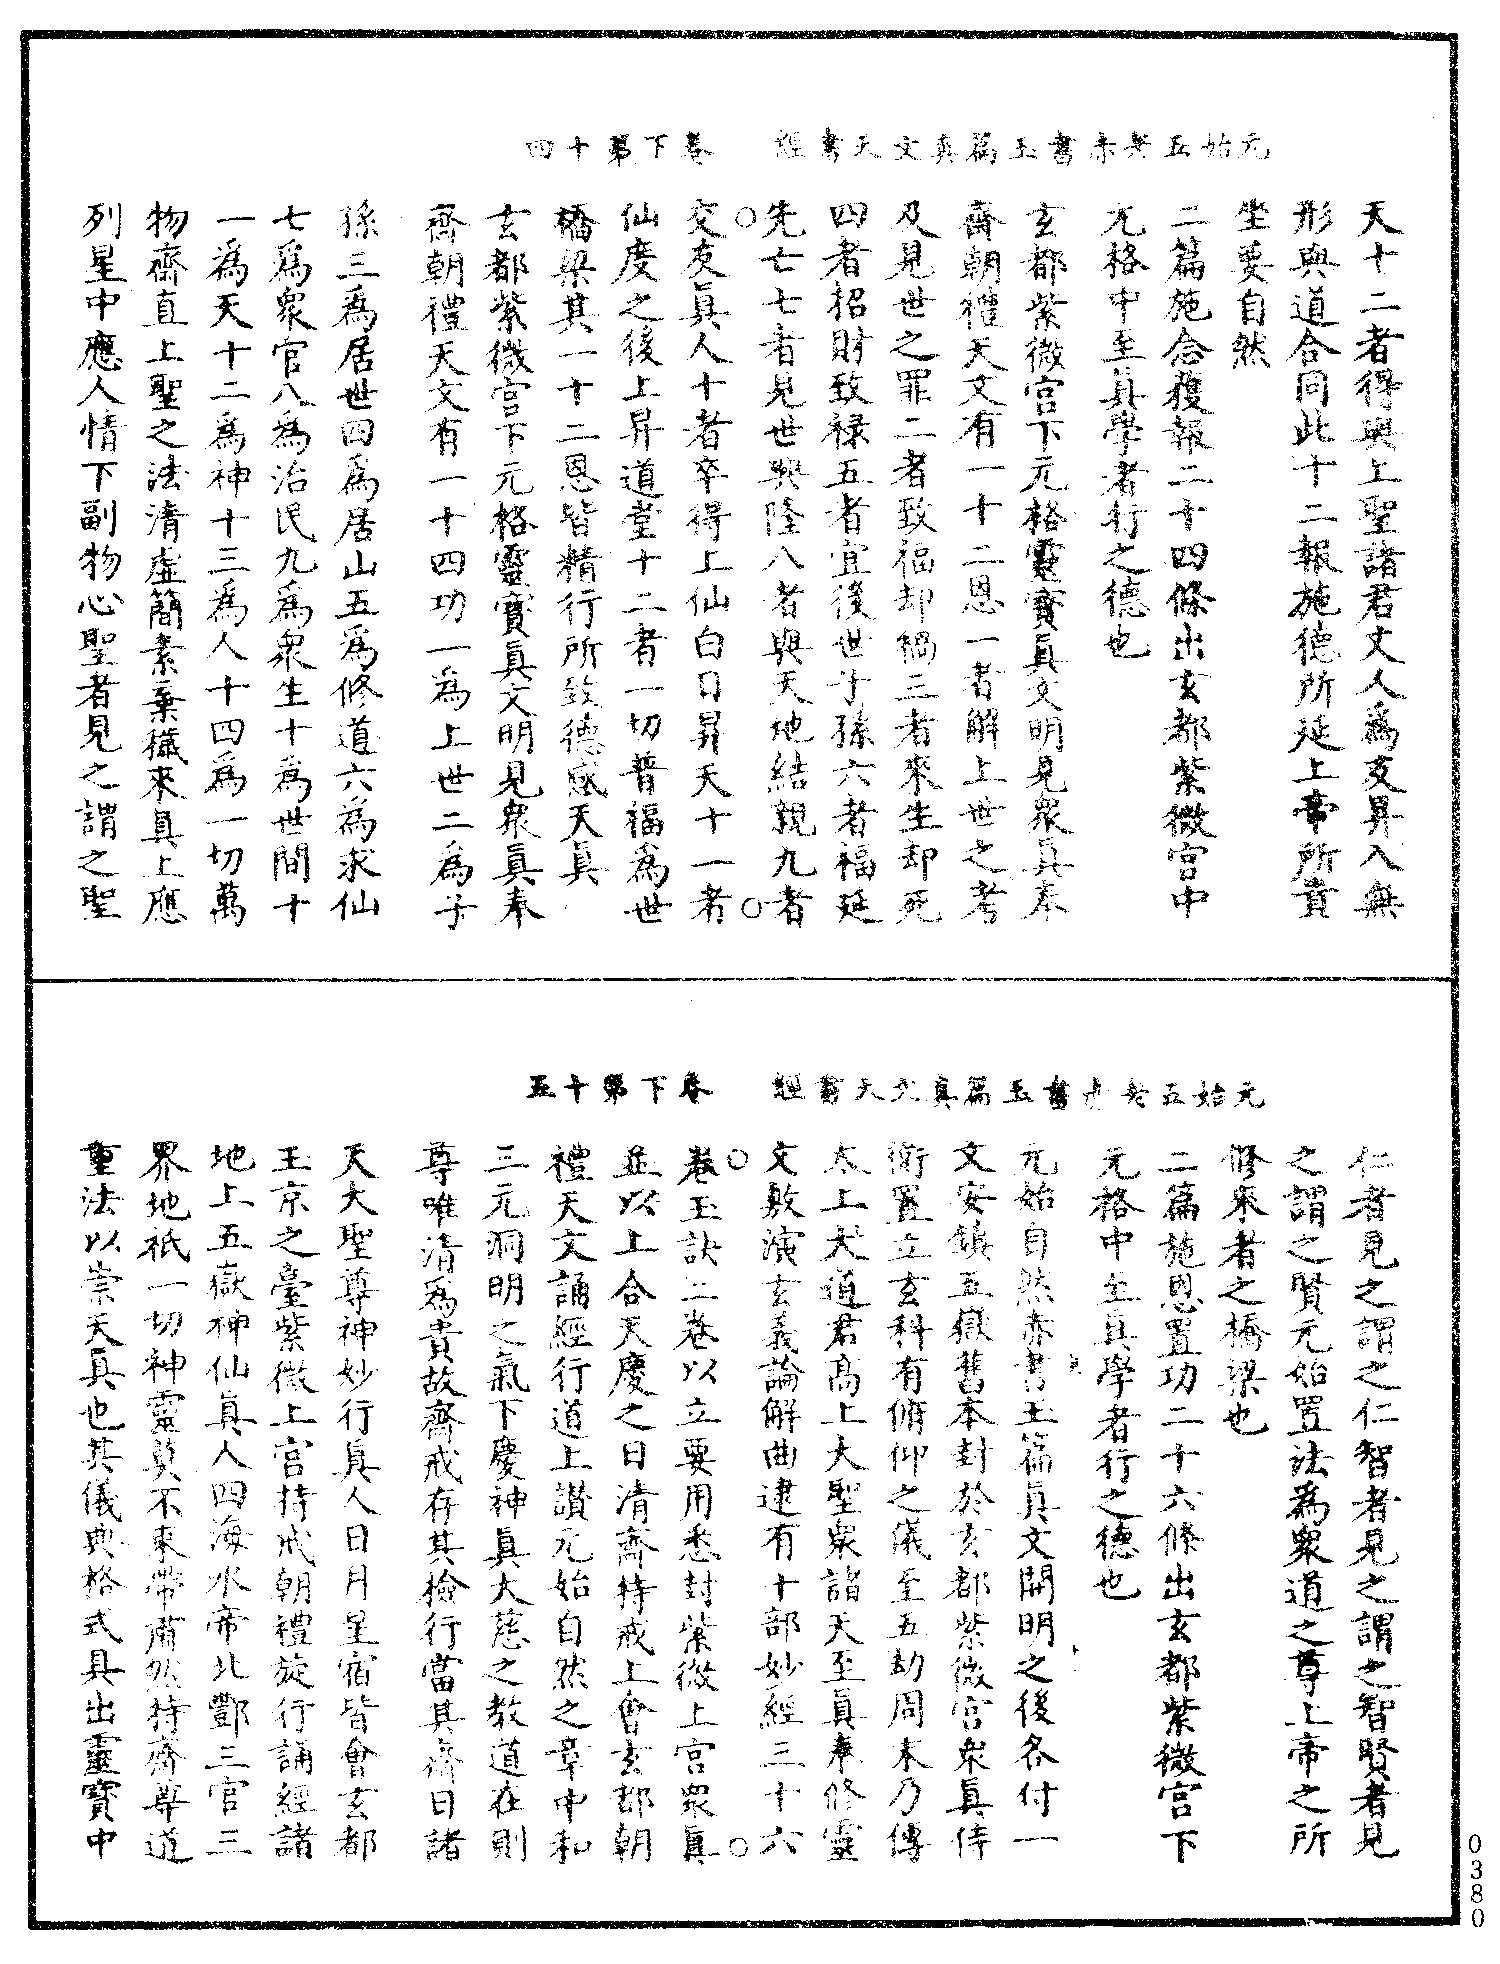 元始五老赤書玉篇真文天書經　卷下第十四
天十二者得與上聖諸君丈人爲友昇入無
形與道合同此十二報施德所延上帝所貴
坐要自然
二篇施念獲報二十四條出玄都紫微宮中
元格中至真學者行之德也
玄都紫微宮下元格靈寶真文明見衆真奉
齋朝禮天文有一十二恩一者解上世之考
及見世之罪二者致福却禍三者來生却死
四者招財致祿五者宜後世子孫六者福延
先亡七者見世興隆八者與天地結親九者
交友真人十者卒得上仙白日昇天十一者
仙度之後上昇道堂十二者一切普福爲世
橋梁其一十二恩皆精行所致德感天真
玄都紫微宮下元格靈寶真文明見衆真奉
齋朝禮天文有一十四功一爲上世二爲子
孫三爲居世四爲居山五爲修道六爲求仙
七爲衆官八爲治民九爲衆生十爲世間十
一爲天十二爲神十三爲人十四爲一切萬
物齋直上聖之法清虛簡素棄穢來真上應
列星中應人情下副物心聖者見之謂之聖
元始五老赤書玉篇真文天書經　卷下第十五
仁者見之謂之仁智者見之謂之智賢者見
之謂之賢元始置法爲衆道之尊上帝之所
修來者之橋梁也
二篇施恩置功二十六條出玄都紫微宮下
元格中至真學者行之德也
元始自然赤書玉篇真文開明之後各付一
文安鎮五嶽舊本封於玄都紫微宮衆真侍
衛置立玄科有俯仰之儀至五劫周末乃傳
太上大道君高上大聖衆諸天至真奉修靈
文敷演玄義論解曲逮有十部妙經三十六
卷玉訣二卷以立要用悉封紫微上宮衆真
並以上合天慶之日清齋持戒上會玄都朝
禮天文誦經行道上讚元始自然之章中和
三元洞明之氣下慶神真大慈之教道在則
尊唯清爲貴故齋戒存其檢行當其齋日諸
天大聖尊神妙行真人日月星宿皆會玄都
玉京之臺紫微上宮持戒朝禮旋行誦經諸
地上五嶽神仙真人四海水帝北酆三官三
界地祇一切神靈莫不束帶肅然持齋尊道
重法以崇天真也其儀典格式具出靈寶中
0380